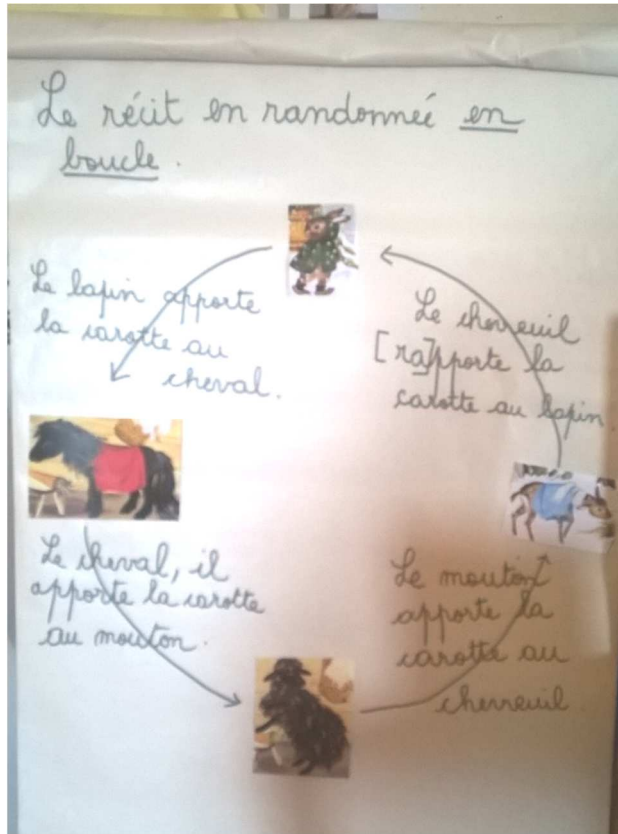 Le récit en randonnée en
boucle.
Le lapin apporte
la carotte au
cheval.
Le cheval, il
apporte la carotte
au mouton.
Le mouton
apporte la
carotte au
chevreuil
Le chevreuil
[ra]pporte la
carotte au lapin.